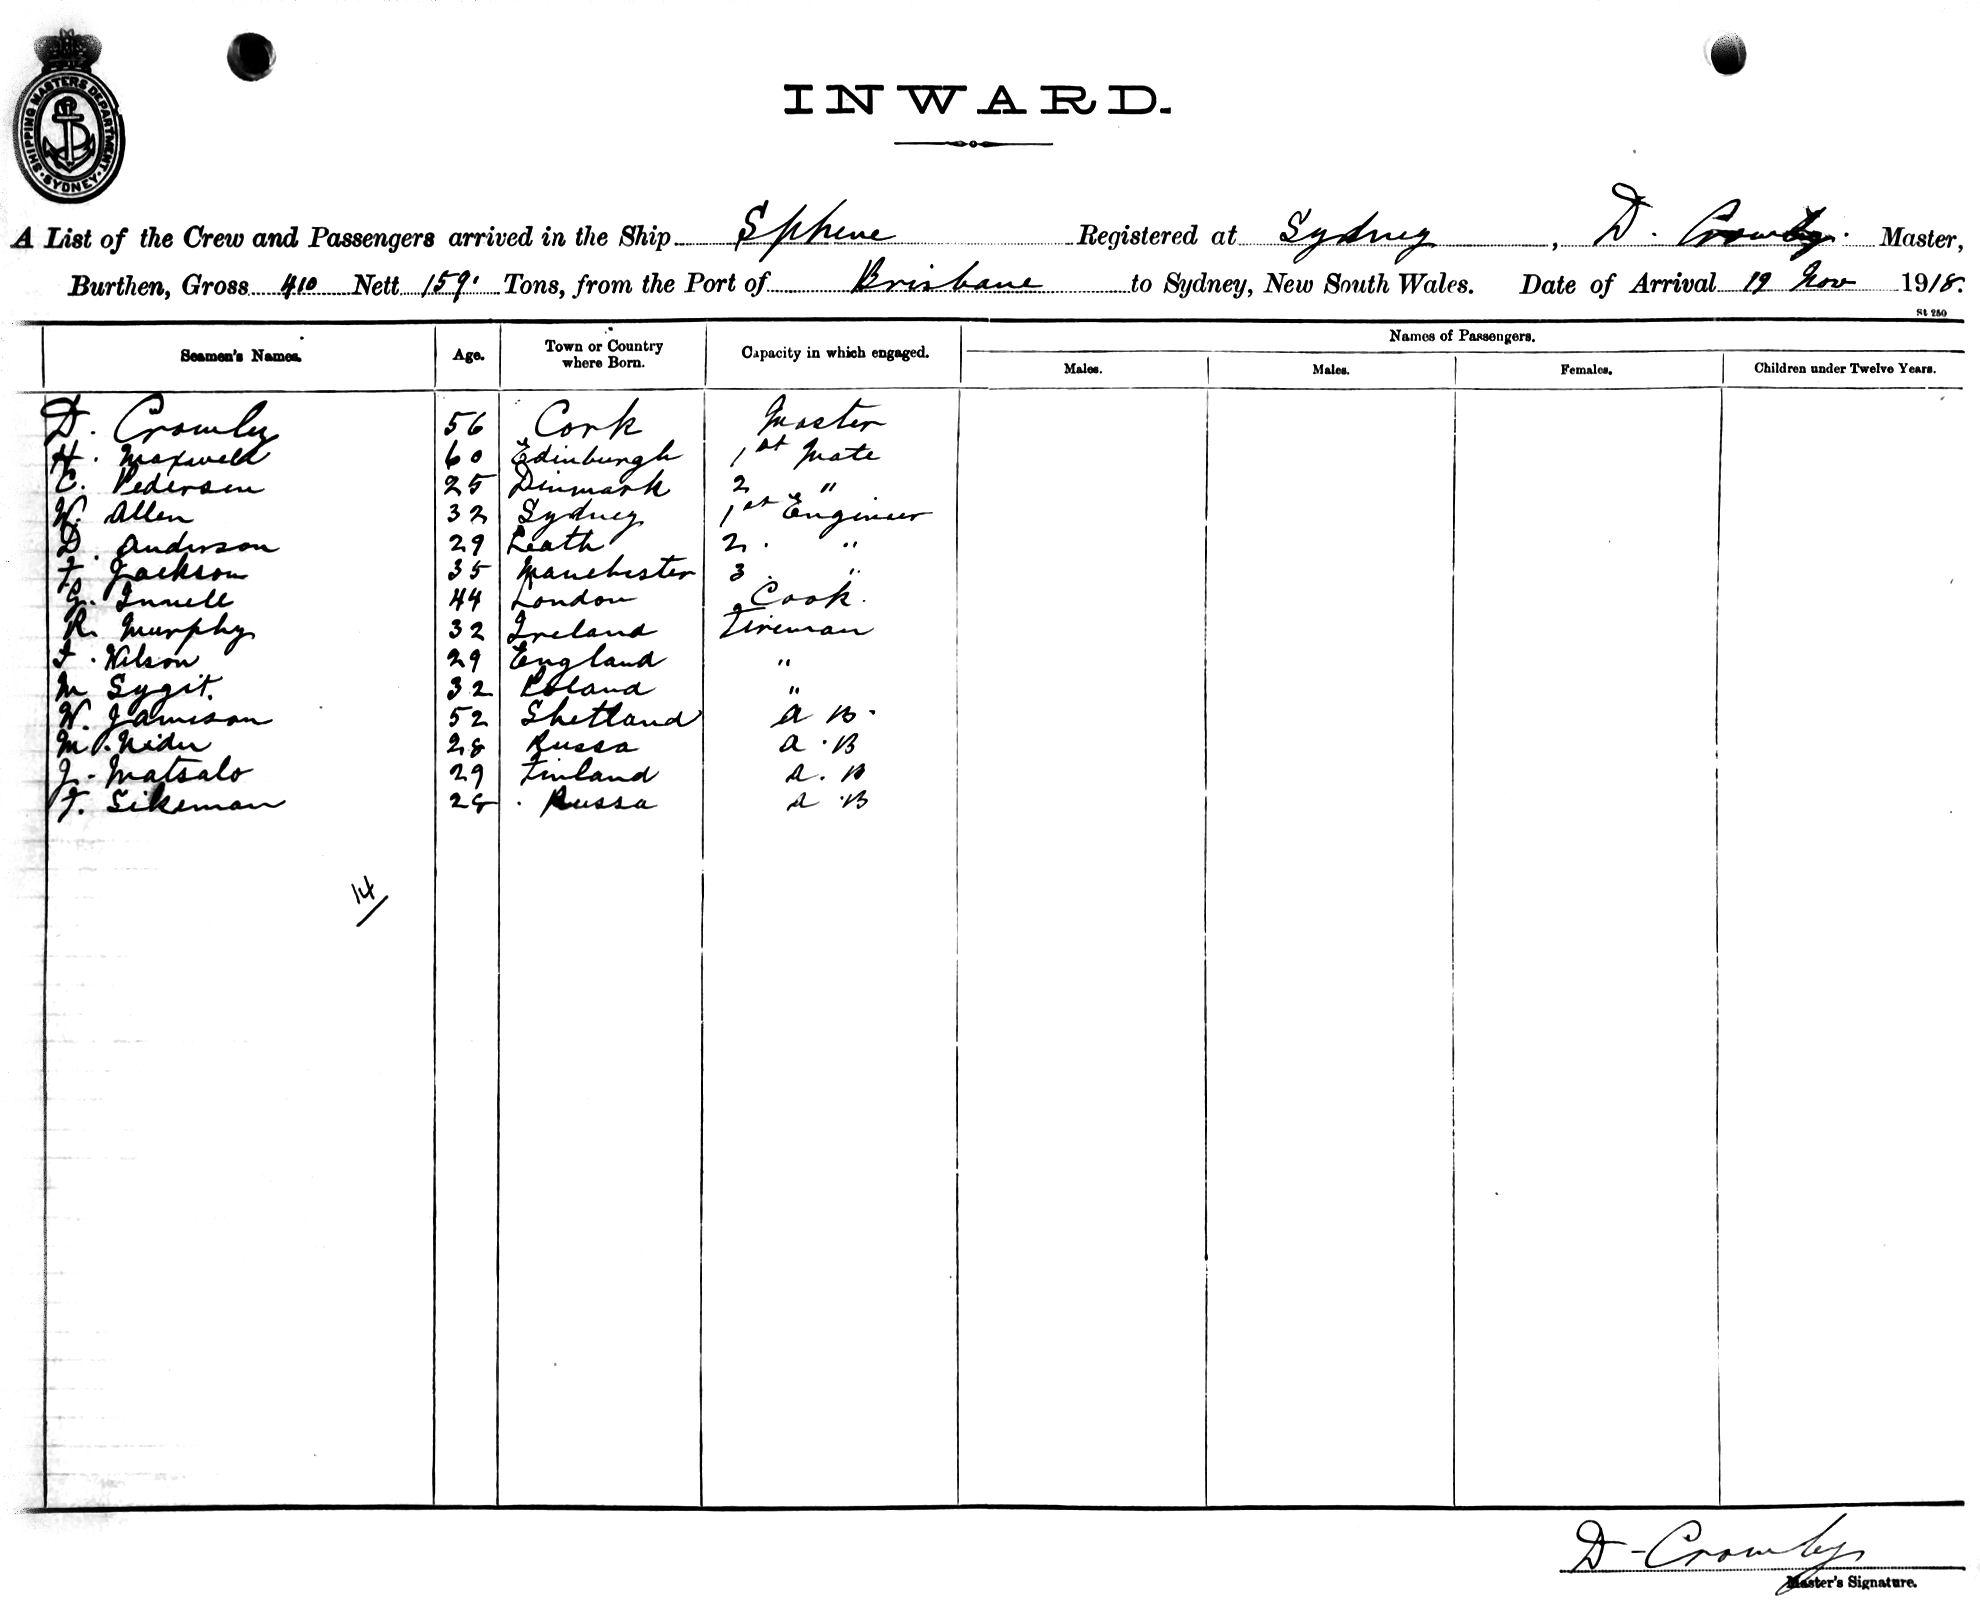 SHIPPING MASTERS DEPARTMENT SYDNEY
INWARD.
A List of the Crew and Passengers arrived in the Ship Sphene Registered at Sydney, D. Cromby. Master,
Burthen, Gross 410 Nett 159. Tons, from the Port of Brisbane to Sydney, New South Wales. Date of Arrival 19 Nov 1918.
St 250
Seamen's Names. Age. Town or Country where Born. Capacity in which engaged. Names of Passengers.
Males. Males. Females. Children under Twelve Years.
D. Cromby 56 Cork Master
H. Maxwell 60 Edinburgh 1st Mate
C. Pedersen 25 Dinmark 2 "
W. Allen 32 Sydney 1st Engineer
D. Anderson 29 Leath 2. "
F. Jackson 35 Manchester 3. "
G. 44 London Cook.
R. Murphy 32 Ireland Fireman
F. Wilson 29 England "
M Sygit. 32 Poland "
W. Jamison 52 Shetland A B.
M. Nider 28 Russa A. B
J. Matsalo 29 Finland A. B
F. Sikeman 28. Russa A. B
14
D - Cromby
Master's Signature.